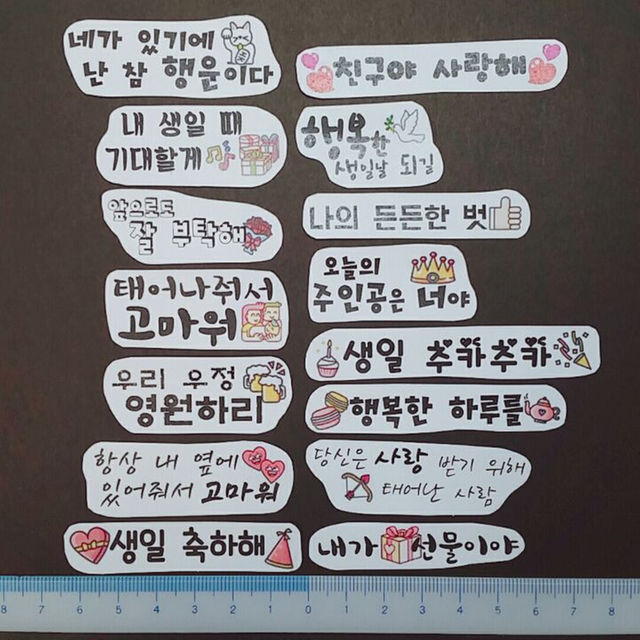 네가 있기에
난 참 행운이다
친구야 사랑해
내 생일 때
기대할게
행복한
생일날 되길
앞으로도
잘 부탁해
나의 든든한 벗
태어나줘서
고마워
오늘의
주인공은 너야
우리 우정
영원하리
생일 추카추카
행복한 하루를
항상 내 옆에
있어줘서 고마워
당신은 사랑 받기 위해
태어난 사람
생일 축하해
내가 선물이야
8 7 6 5 4 3 2 1 0 1 2 3 4 5 6 7 8